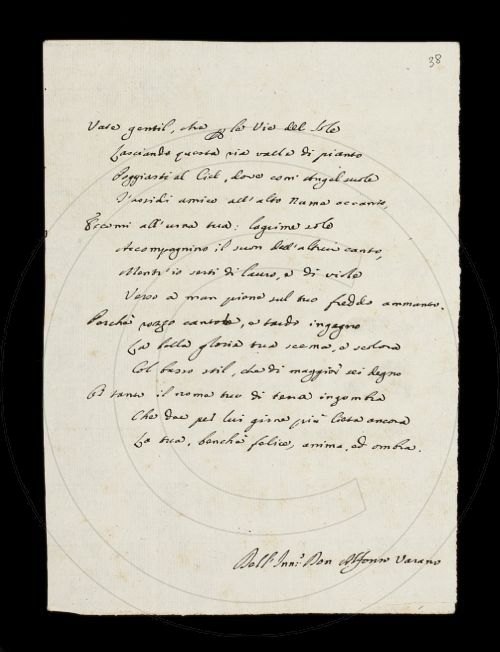 38
Vate gentil, che per le Vie del Sole
Lasciando questa ria valle di pianto
Poggiasti al Ciel, dove com' Angel suole
T'assidi amico all' alto Nume accanto,
Eccomi all' urna tua: lagrime sole
Accompagnino il suon dell' altrui canto,
Mentr' io serti di lauro, e di viole
Verso a man piene sul tuo freddo ammanto.
Perchè rozzo cantore, e tardo ingegno
La bella gloria tua scema, e scolora
Col basso stil, che di maggior sei degno
Di tanto il nome tuo di terra ingombra
Che dee per lui girne più lieta ancora
La tua, benchè felice, anima, ed ombra.
Dell' Don Alfonso Varano